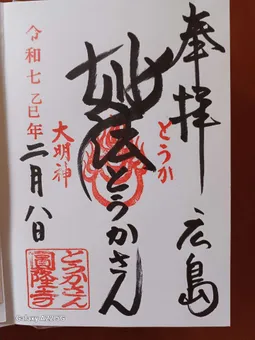 奉拝 広島
とうか
妙法とうかさん
大明神
令和七乙巳年
二月八日
とうかさん
圓隆寺
Galaxy A22 5G